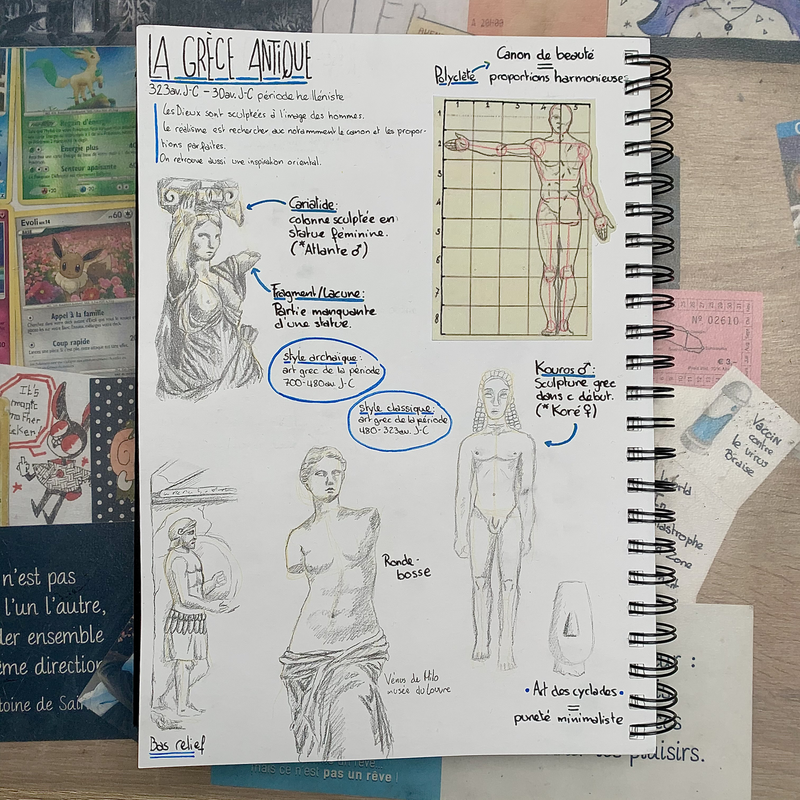 LA GRÈCE ANTIQUE
323av.J-C – 30av.J-C période helléniste
Les Dieux sont sculptées à l'image des hommes.
Le réalisme est rechercher avec notamment le canon et les propor-
tions parfaites.
On retrouve aussi une inspiration oriental.
Canon de beauté
=
Polyclète
proportions harmonieuses
1 2 3 4
1
2
3
4
5
6
7
8
Cariatide:
colonne sculptée en
statue féminine.
(*Atlante ♂)
Fragment/Lacune:
Partie manquante
d'une statue.
Style archaïque:
art grec de la période
700-480av. J-C
Style classique:
art grec de la période
480-323av. J-C
Kouros ♂:
Sculpture grec
dans c début.
(*Koré ♀)
Ronde-
bosse
Vénus de Milo
musée du Louvre
• Art des cyclades •
=
pureté minimaliste
Bas relief
A 20h00
Energie plus
Senteur apaisante
Evoli
60
Appel à la famille
Coup rapide
It's
n'est pas
l'un l'autre,
der ensemble
ême direction
toine de Sai
N° 02610
€3,-
Vaccin
contre
le virus
astrophe
Zone
plaisirs.
mais ce n'est pas un rêve !